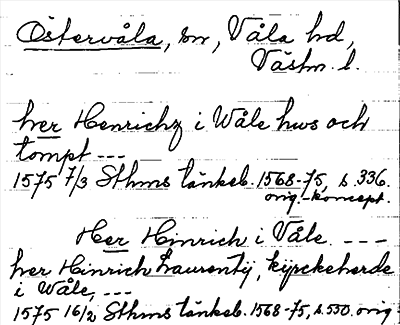 Östervåla, sn, Våla hd,
Västm. l.
her Henrichz i Wåle hws och
tompt ---
1575 7/3 Sthms tänkeb. 1568-75, s. 336.
orig.-koncept.
Her Hinrich i Våle. ---
her Hinrich Laurentij, kyrckeherde
i Wåle, ---
1575 16/2 Sthms tänkeb. 1568-75, s. 550. orig